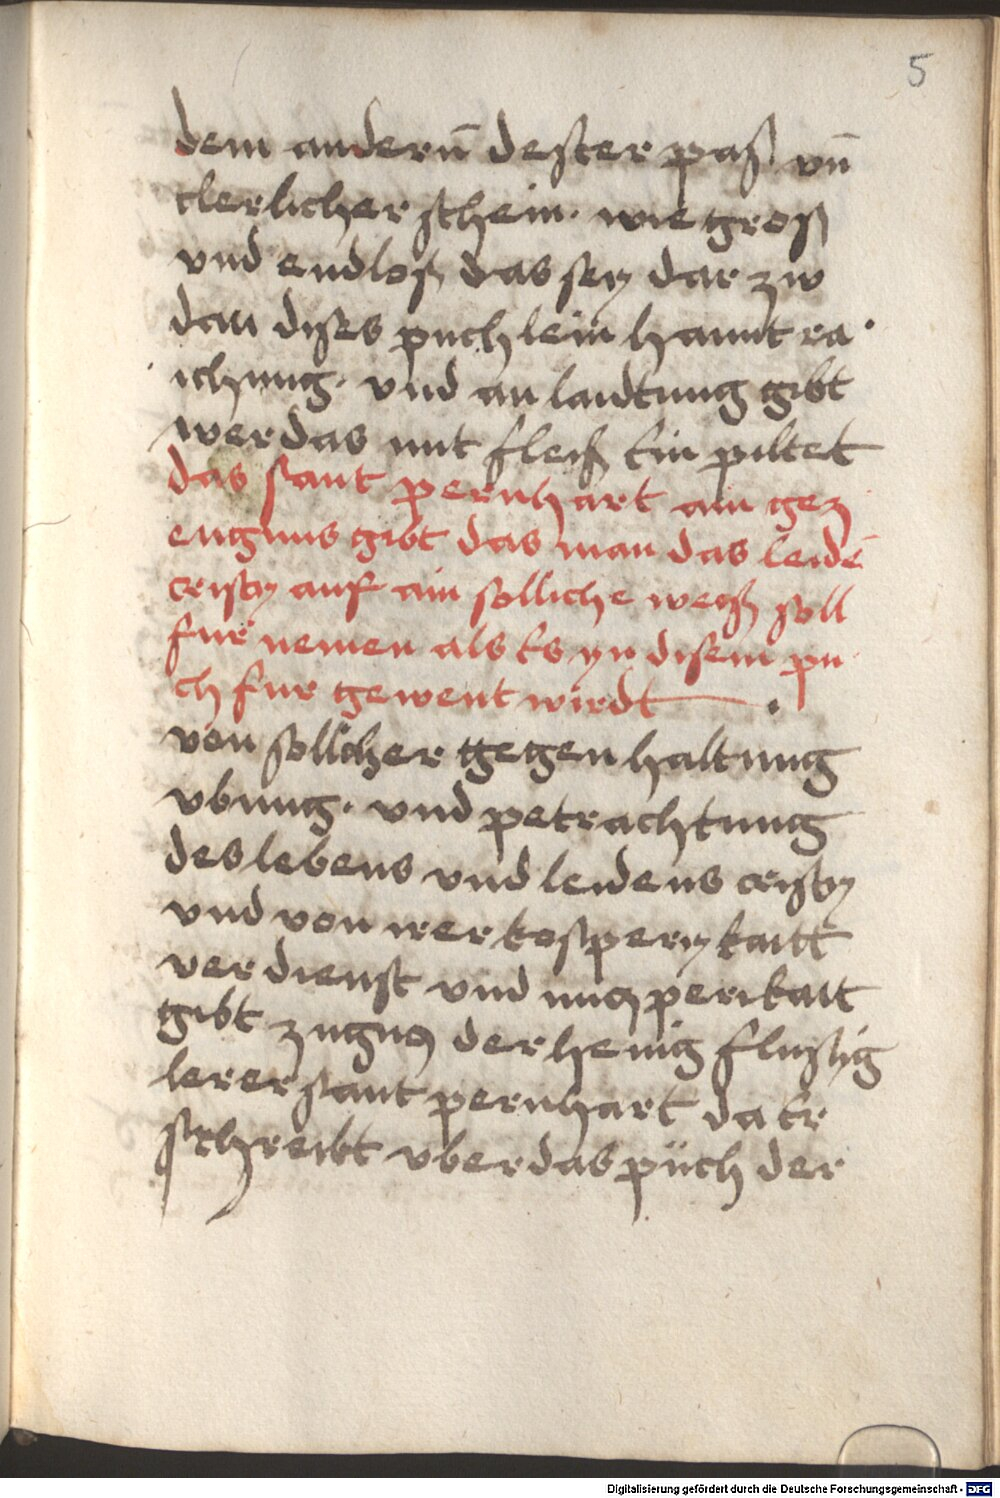 5
dem andern̄ dester paß vn̄
clerlicher schein. wie groß
vnd endloß das sey dar zw
dan dises puchlein hannt ra
ichung. vnd an laidtung gibt
wer das mit fleiß ein piltet
das sant pernhart ain gez
eugnus gibt das man das leidē
cristy auf ain solliche weiß soll
fur nemen als es yn disem pu
ch fur gewent wirdt
von sollcher gegen haltung
vbung. vnd petrachtung
des lebens vnd leidens cristy
vnd von irer kosperykaitt
verdienst vnd nuczperikait
gibt zugnus der henig flussig
lerer sant pernhart da er
schreibt vber das püch der
Digitalisierung gefördert durch die Deutsche Forschungsgemeinschaft - DFG